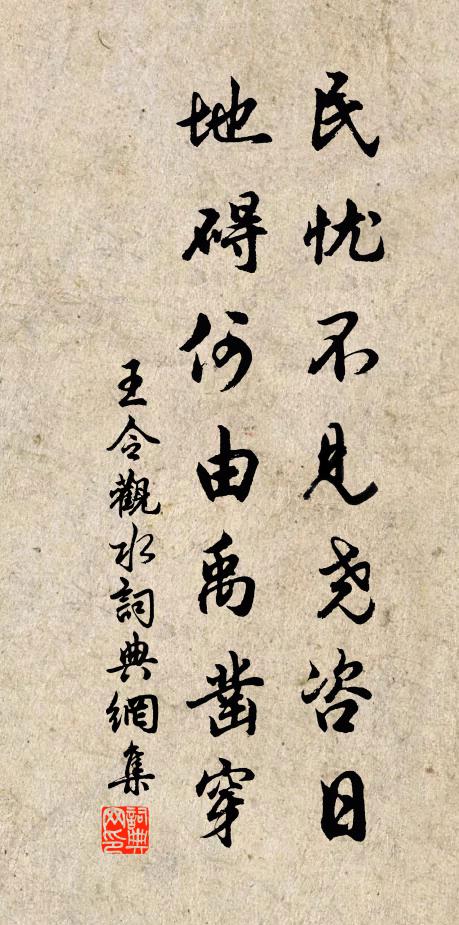 民忧不见尧咨日
地碍何由禹凿穿
王令觀水詞典網集
詞典网印